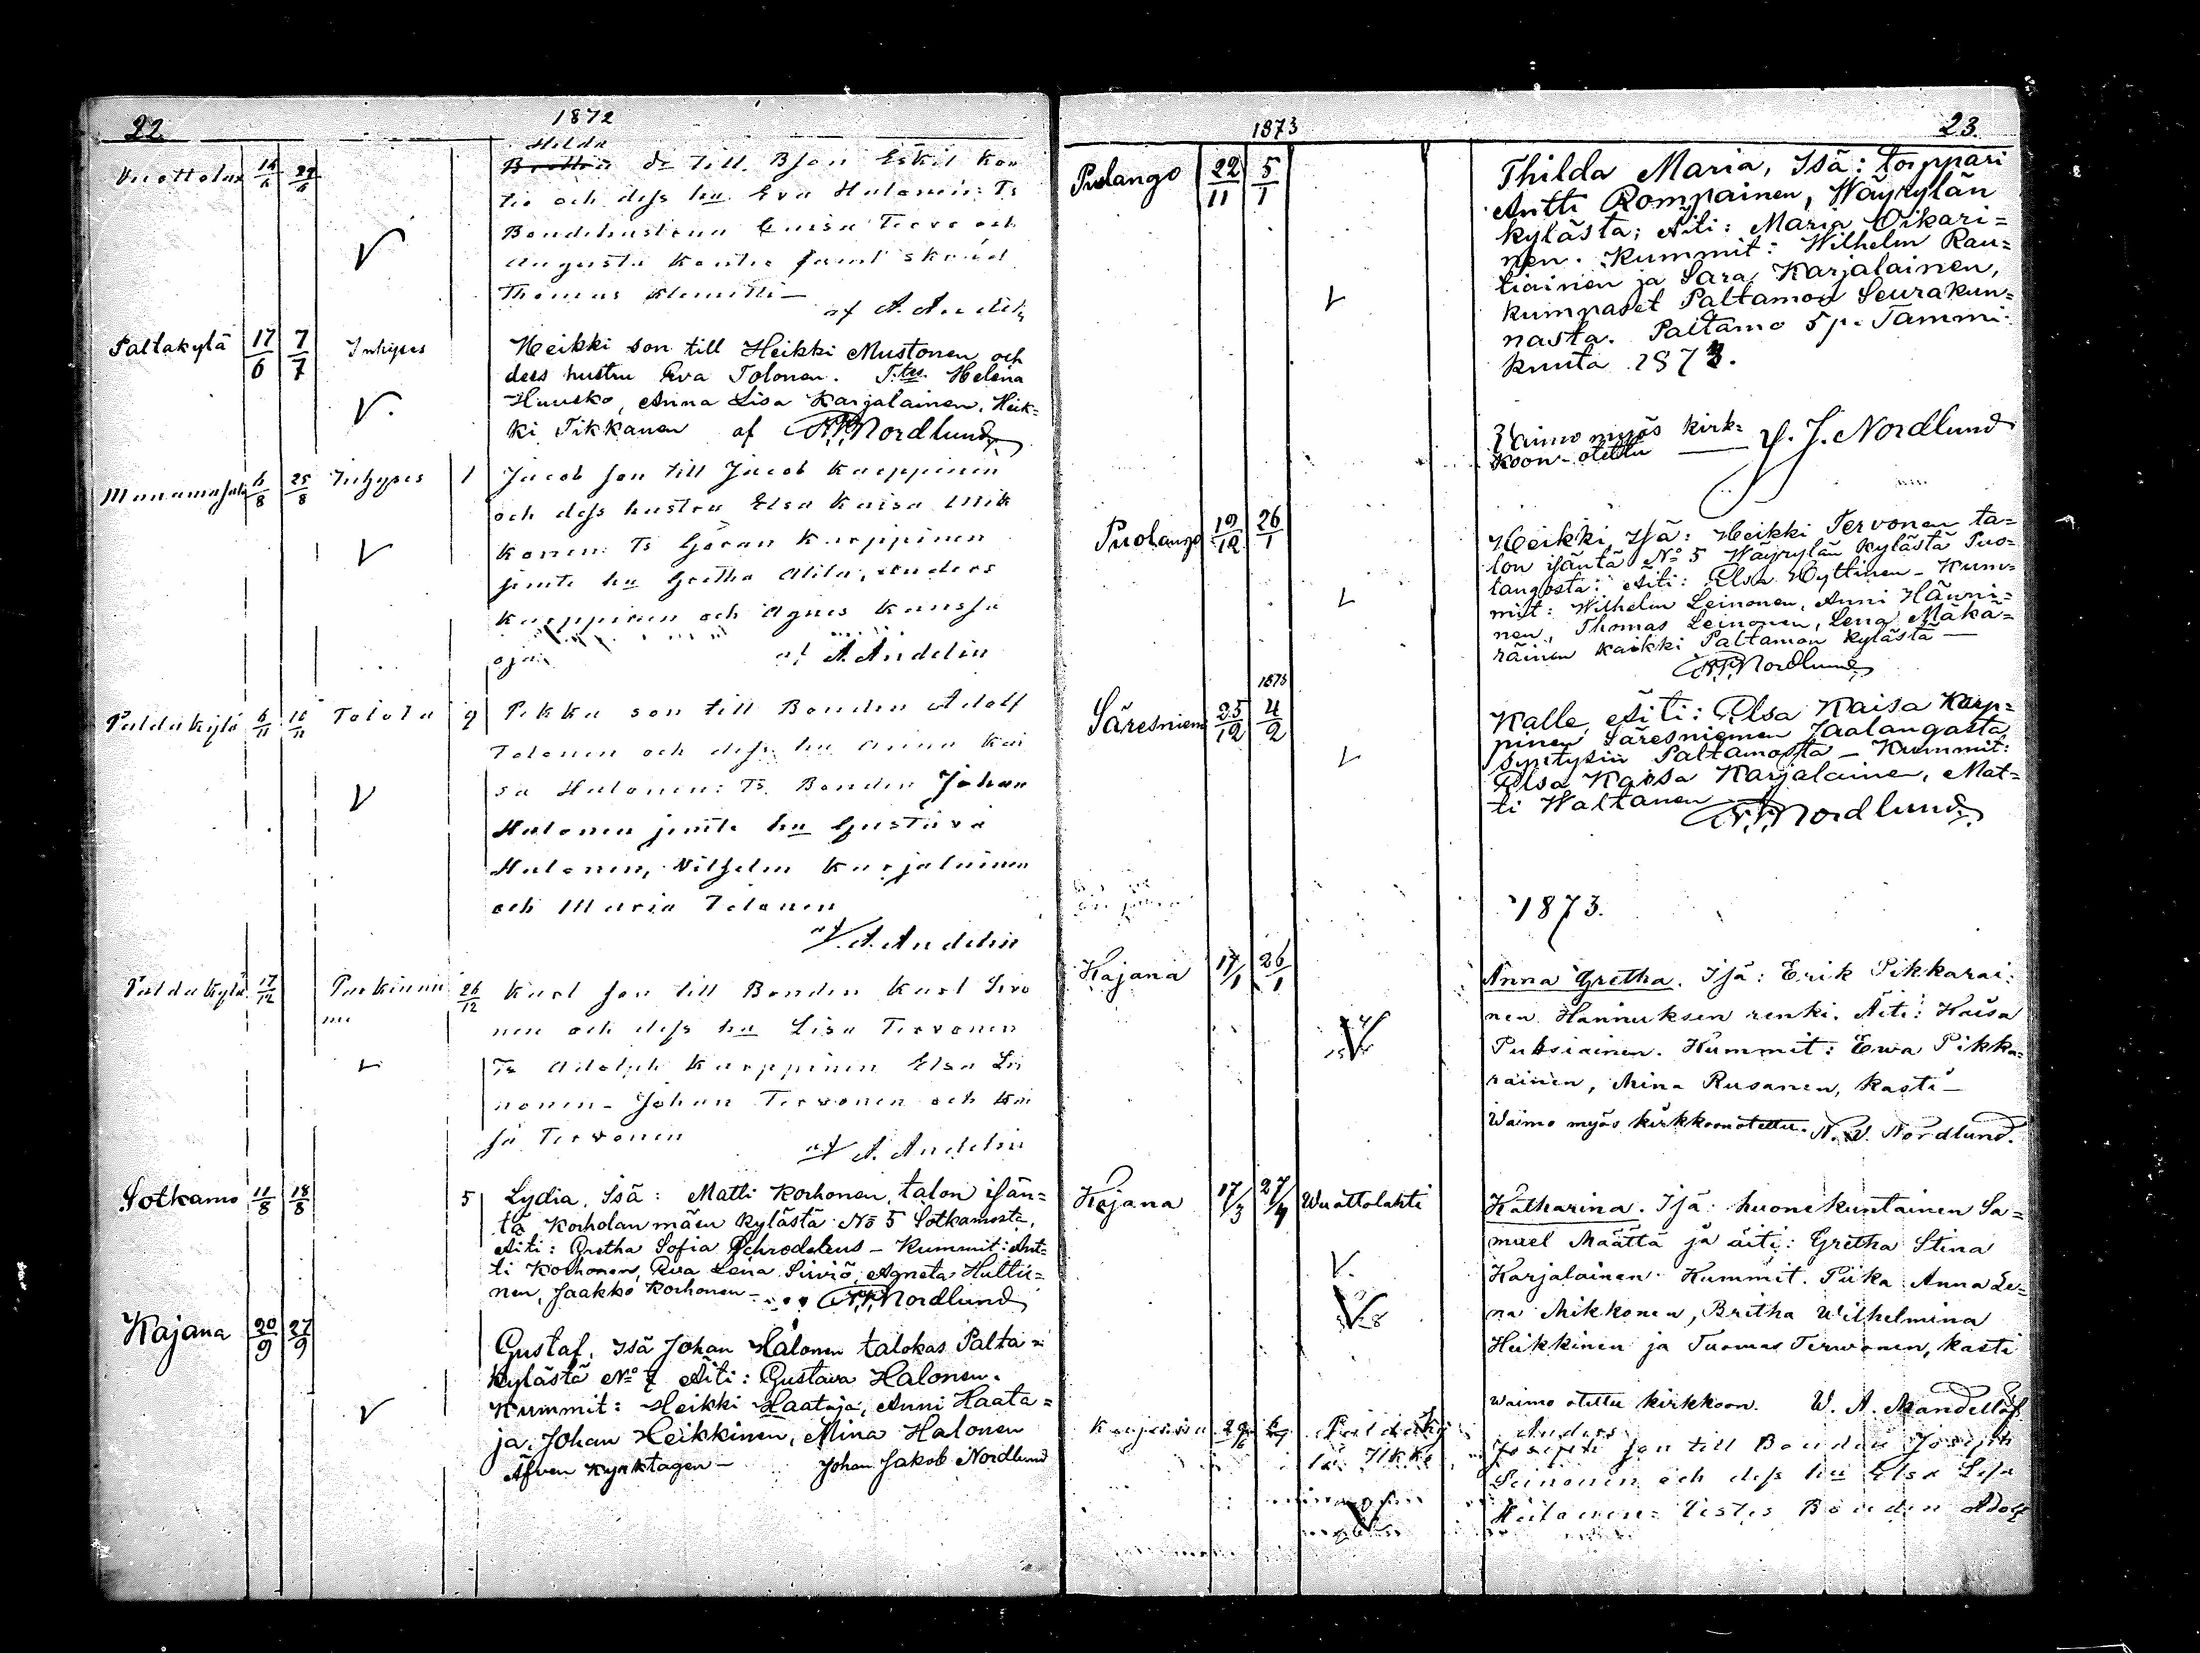 22.
1872
Vuottolax 16/6 22/6
Hilda
dr till Bson Eskil Kon
tio och dess hu Eva Halonen: Ts
Bondehustrun Caisa Tervo och
Augusta Kontio samt skräd
Thomas
af A. Andelin
Paltakylä 17/6 7/7 Inhyses
Heikki son till Heikki Mustonen och
dess hustru Eva Tolonen. T:tes. Helena
Huusko, Anna Lisa Karjalainen, Heik=
ki Tikkanen af Nordlund
6/8 25/8 Inhyses 1
Jacob son till Jacob Karppinen
och dess hustru Elsa Kaisa Mik
konen: Ts Göran Karppinen
jemte hu Gretha Anders
Karppinen och Agnes Kansa
oja
af A. Andelin
Paldakylä 6/11 10/11 Tolola 9
Pekka son till Bonden Adolf
Tolonen och dess hu Anna Kai
sa Halonen: Ts. Bonden Johan
Halonen jemte hu Gustava
Halonen, Vilhelm Karjalainen
och Maria Tolonen
af A. Andelin
Paldakylä 17/12 26/12
Karl son till Bonden Karl
nen och dess hu Lisa Tervonen
Ts Adolph Karppinen Elsa Lei
nonen - Johan Tervonen och Kai
sa Tervonen
af A. Andelin
Sotkamo 11/8 18/8 5
Lydia, Isä: Matti Korhonen, talon isän=
tä Korholanmäen kylästä No 5 Sotkamosta,
Äiti: Gretha Sofia Schroderus - Kummit: Ant=
ti Korhonen, Eva Lena Siiviö, Agneta Hultu=
nen, Jaakko Korhonen - Nordlund
Kajana 20/9 27/9
Gustaf, Isä Johan Halonen talokas Palta=
kylästä No 7 Äiti: Gustava Halonen.
Kummit: Heikki Haataja, Anni Haata=
ja, Johan Heikkinen, Mina Halonen
Äfven kyrktagen - Johan Jakob Nordlund
1873
23.
Pulango 22/11 5/1
Thilda Maria, Isä: torppari
Antti Rompainen, Wäyrylän
kylästä; Äiti: Maria Oikari=
nen. Kummit: Wilhelm Rau=
tiainen ja Sara Karjalainen,
kumpaset Paltamon Seurakun=
nasta. Paltamo 5 p. Tammi
kuuta 1873.
Vaimo myös kirk=
koon-otettu J. J. Nordlund
Puolango 19/12 26/1
Heikki, Isä: Heikki Tervonen ta=
lon isäntä No 5 Wäyrylän kylästä Puo=
langosta: Äiti: Elsa Hyttinen - Kum=
mit: Wilhelm Leinonen, Anni Hänni=
nen, Thomas Leinonen, Lena Mäkä=
räinen kaikki Paltamon kylästä -
Nordlund
1873
Säresniemi 25/12 4/2
Kalle, Äiti: Elsa Kaisa Karp=
pinen Säresniemen Jaalangasta
syntysin Paltamosta - Kummit:
Elsa Kaisa Karjalainen, Mat=
ti Waltanen
Nordlund
1873.
Kajana 17/1 26/1
Anna Gretha. Isä: Erik Pikkarai:
nen Hannuksen renki. Äiti: Kaisa
Putsiainen. Kummit: Ewa Pikka=
rainen, Mina Rusanen, kasti -
Waimo myös kirkkoonotettu. Nordlund.
Kajana 17/3 27/4 Wuottolahti
Katharina. Isä: huonekuntainen Sa=
muel Määttä ja äiti: Gretha Stina
Karjalainen. Kummit. Piika Anna Le=
na Mikkonen, Britha Wilhelmina
Heikkinen ja Tuomas Terwonen, kasti
waimo otettu kirkkoon. W. A. Mandellöf
Anders
son till Bonden Joseph
Leinonen och dess hu Elsa Lisa
Testes Bonden Adolf